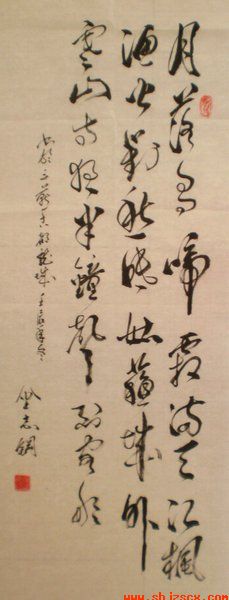 月落烏啼霜滿天江楓
漁火對愁眠姑蘇城外
寒山寺夜半鐘聲到客船
www.shjzscx.com